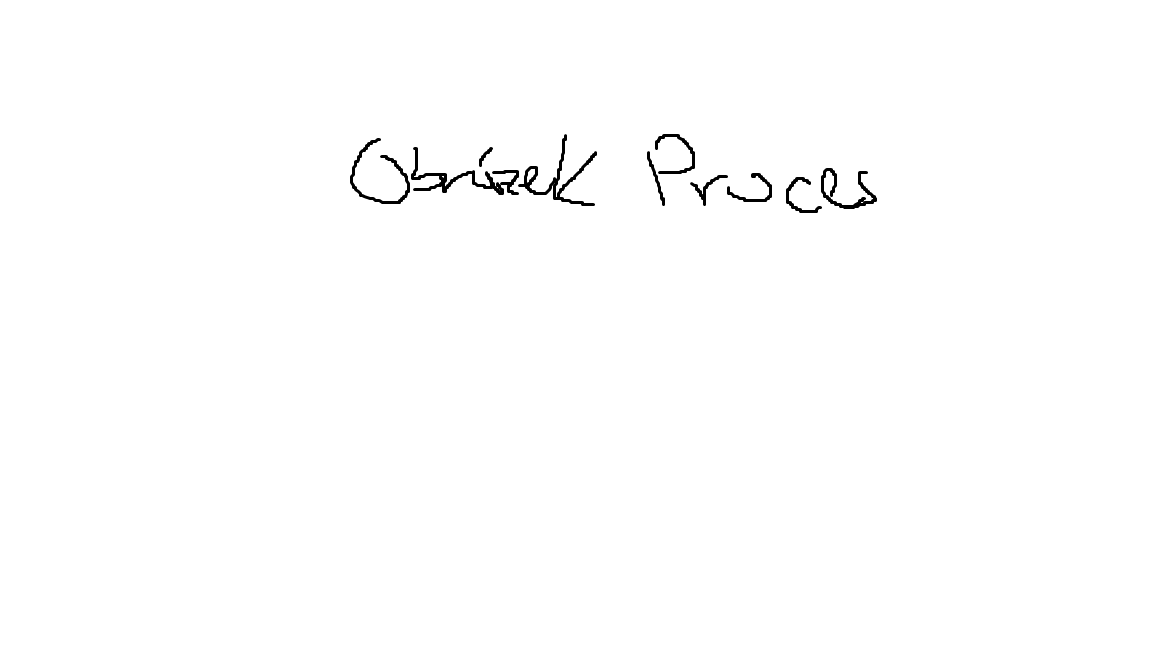 Obrázek Proces